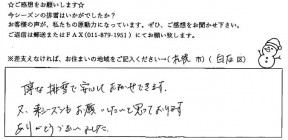 ☆ご感想をお願いします☆
今シーズンの排雪はいかがでしたか？
お客様の声が、私たちの原動力になっています。ぜひ、ご感想をお聞かせ下さい。
ご返信は郵送またはFAX(011-879-1951)にてお願い致します。
※差支えなければ、お住まいの地域をご記入ください→(札幌 市)(白石 区)
排雪で安心しておまかせできます。
又、来シーズンもお願いしたいと思っております
ありがとうございました。